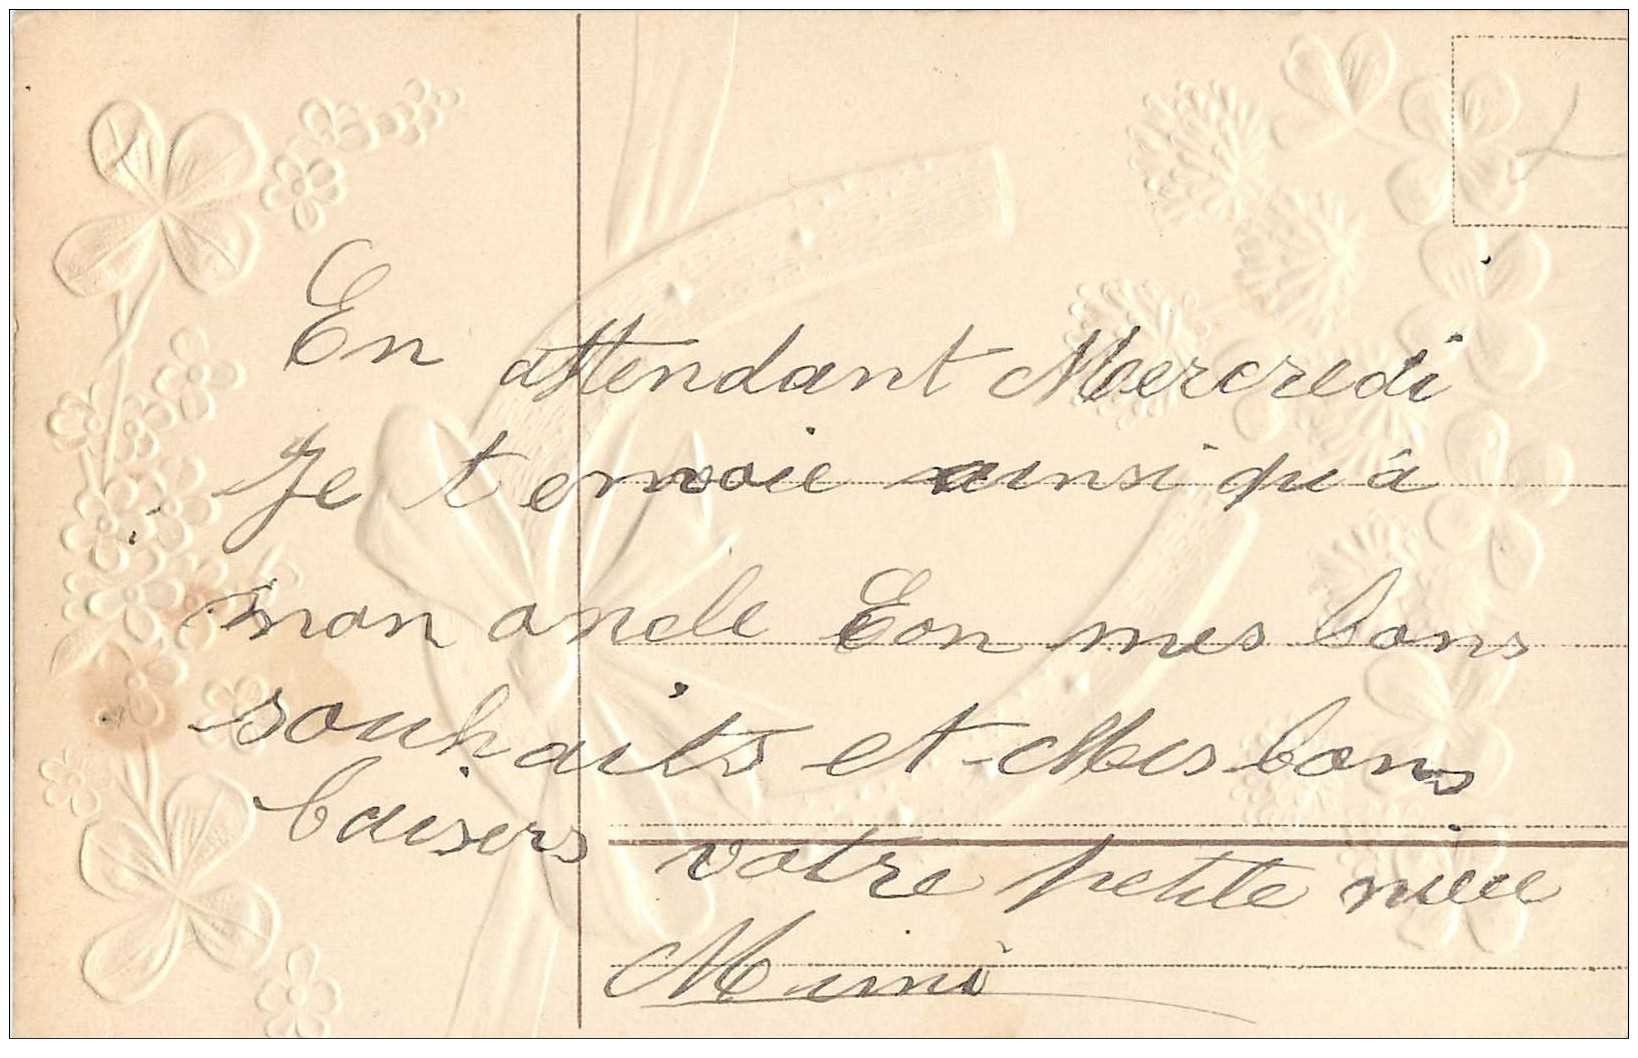 En attendant Mercredi
Je t envoie ainsi qu a
mon oncle Eon mes bons
souhaits et Mes bons
baisers votre petite niece
Mimi